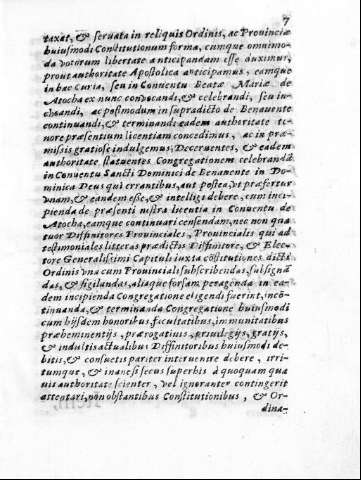 7
taxat, & seruata in reliquis Ordinis, ac Prouinciæ
huiusmodi Constitutionum forma, cumque omnimo-
da votorum libertate anticipandam esse duximus,
prout authoritate Apostolica anticipamus, eamque
in hac Curia, seu in Conuentu Beatæ Mariæ de
Atocha ex nunc conuocandi, & celebrandi, seu in-
choandi, ac postmodum in supradicto de Benauente
continuandi, & terminandi eadem authoritate te-
nore præsentium licentiam concedimus, ac in præ-
missis gratiose indulgemus, Decernentes, & eadem
authoritate statuentes Congregationem celebrandã
in Conuentu Sancti Dominici de Benauente in Do-
minica Deus qui errantibus, aut postea, vt præfertur
vnam, & eandem esse, & intelligi debere, cum inci-
pienda de præsenti nostra licentia in Conuentu de
Atocha, eamque continuari censendam, nec non qua-
tuor Diffinitores Prouinciales, Prouinciales qui ad
testimoniales litteras prædictos Diffinitore, & Elec-
tore Generalissimi Capituli iuxta cõstitutiones dicti
Ordinis vna cum Prouinciali subscribendas, subsignã
das, & sigilandas, aliaque forsam peragenda in ea-
dem incipienda Congregatione eligendi fuerint, incõ-
tinuanda, & terminanda Congregatione huiusmodi
cum ijsdem honoribus, facultatibus, immunitatibus
præheminentijs, prærogatiuis, priuilegijs, gratijs,
& indultis actualibus Diffinitoribus huiusmodi de-
bitis, & consuetis pariter interuenire debere, irri-
tumque, & inane si secus super his à quoquam qua
uis authoritate scienter, vel ignoranter contingerit
attentari, non obstantibus Constitutionibus, & Or-
dina-